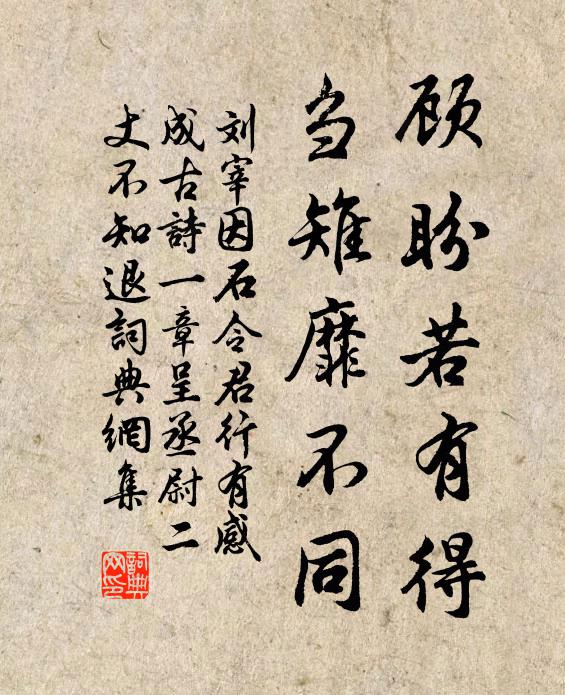 顾盼若有得
刍雉靡不同
刘宰因石令君行有感
成古詩一章呈丞尉二
丈不知退詞典網集
詞典网印